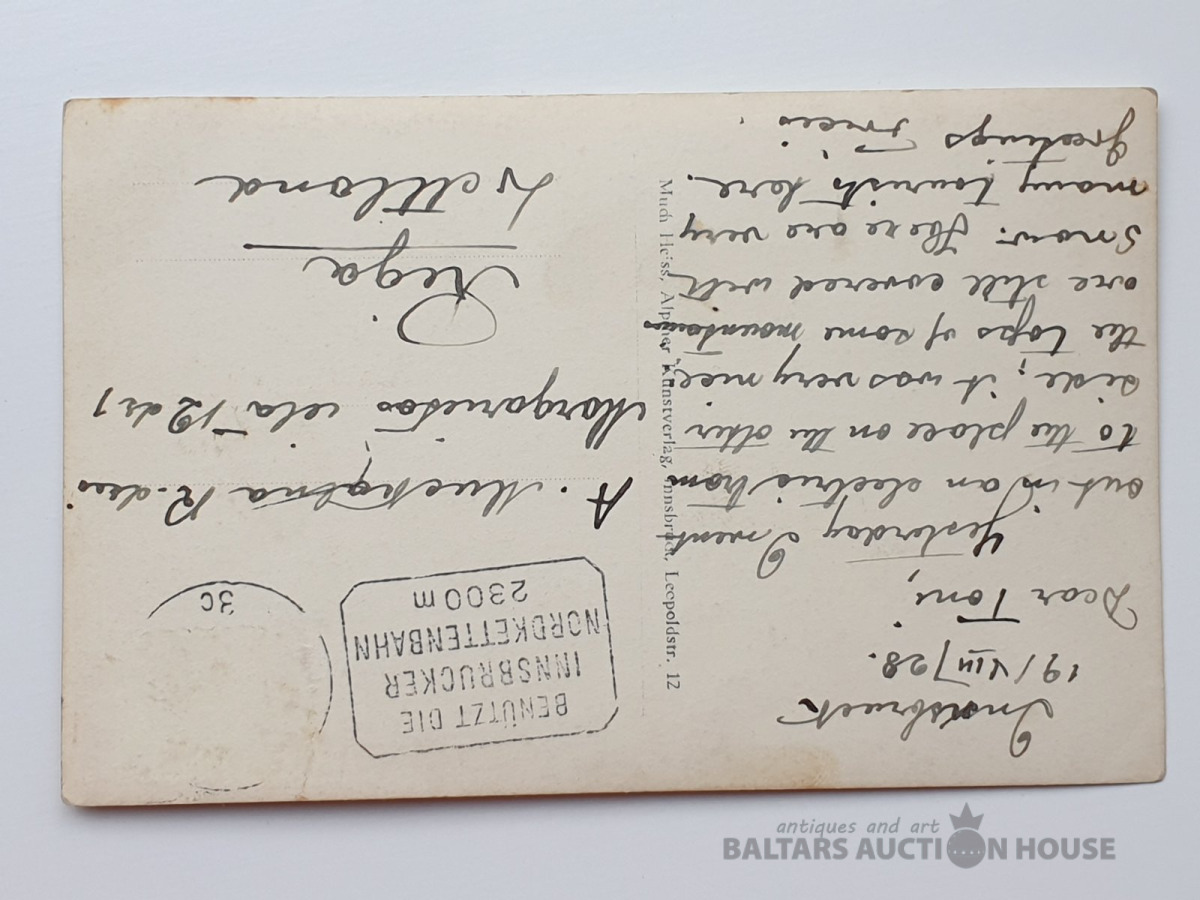 Innsbruck
19/VIII/28.
Dear Toni,
Yesterday I went
out in an electric tram
to the place on the other
side; it was very nice,
the tops of some mountains
are still covered with
snow. There are very
many tourists here.
Greetings
BENÜTZT DIE
INNSBRUCKER
NORDKETTENBAHN
2300 m
3c
A.
Margarietas ielā 12 ds 1
Riga
Lettland
Much Heiss, Alpiner Kunstverlag, Innsbruck, Leopoldstr. 12
antiques and art
BALTARS AUCTION HOUSE